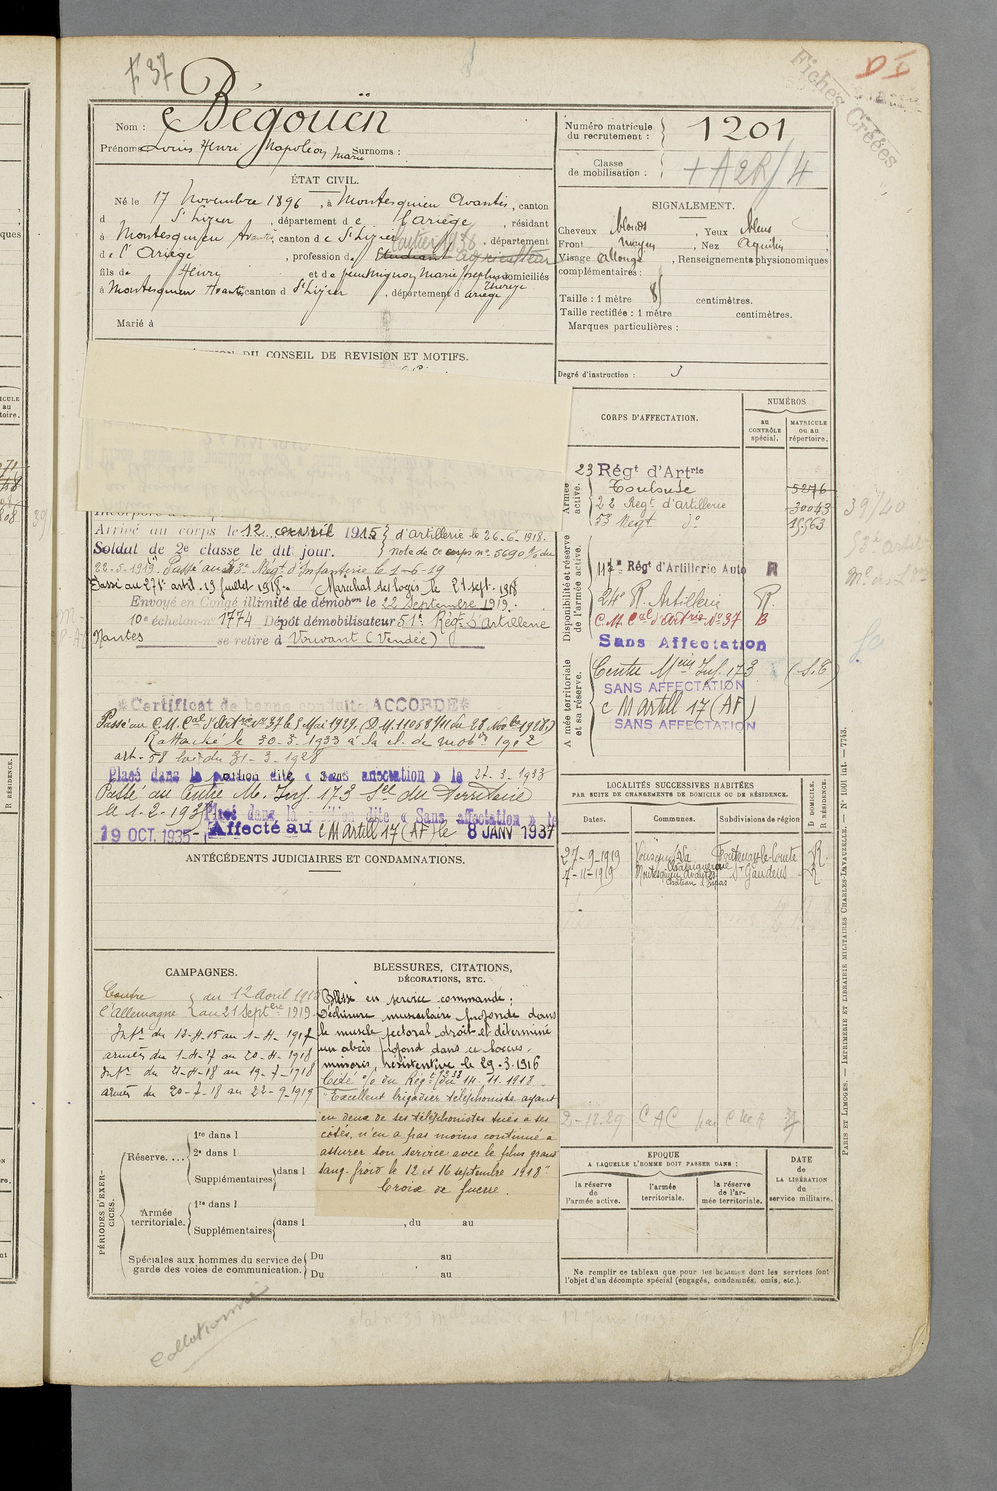 F 37
Nom : Bégouën
Prénoms : Louis Henri Napoléon Marie Surnoms :
ÉTAT CIVIL.
Né le 17 Novembre 1896, à Montesquieu Avantès, canton
d St Lizier, département de l'Ariège, résidant
à Montesquieu Avantès, canton de St Lizier, département
de l'Ariège, profession d Etudiant agriculteur
fils de Henri et de Marie Josephine Thérèse domiciliés
à Montesquieu Avantès canton d St Lizier, département d Ariège
Marié à
DU CONSEIL DE REVISION ET MOTIFS.
Arrivé au corps le 12 avril 1915 d'artillerie le 26-6-1918.
Soldat de 2e classe le dit jour. note de ce corps no 5690 du
22-5-1919. Passé au 53e Régt d'Infanterie le 1-6-19
Passé au 271e artil. 19 juillet 1918. Maréchal des Logis le 21 sept. 1918
Envoyé en Congé illimité de démobon le 22 Septembre 1919.
10e échelon no 1774 Dépôt démobilisateur 51e Régt d'Artillerie
Nantes se retire à Vouvant (Vendée)
*Certificat de bonne conduite ACCORDÉ*
Passé au C.M. Cal d'Artrie no 37 le 8 Mai 1929. (D.M. 11058 du 28 Nobre 1928)
Rattaché le 30-3-1933 à la cl. de mobon 1912
art. 58 loi du 31-3-1928
Placé dans la position dite « sans affectation » le 27-3-1933
Passé au Centre M. Inf. 173 Sel du Territoire
le 1-2-193 Placé dans la position dite « Sans affectation » le
19 OCT. 1935 - Affecté au C M Artill 17 (AF) le 8 JANV 1937
ANTÉCÉDENTS JUDICIAIRES ET CONDAMNATIONS.
CAMPAGNES.
Contre l'Allemagne du 12 Avril 1915
au 21 Septbre 1919
Intr du 12-4-15 au 1-4-1917
armées du 1-4-17 au 20-4-1918
Intr du 21-4-18 au 19-7-1918
armées du 20-7-18 au 22-9-1919
BLESSURES, CITATIONS,
DÉCORATIONS, ETC.
Blessé en service commandé :
Déchirure musculaire profonde dans
le muscle pectoral droit et déterminé
un abcès profond dans ce locus
minoris resistentiae le 29-3-1916
Cité o/o du Régt no 238 du 14-11-1918
"Excellent brigadier téléphoniste ayant
eu deux de ses téléphonistes tués à ses
côtés, n'en a pas moins continué à
assurer son service avec le plus grand
sang-froid le 12 et 16 septembre 1918"
Croix de Guerre.
PÉRIODES D'EXERCICES.
Réserve....
1re dans l
2e dans l
Supplémentaires dans l
Armée territoriale.
1re dans l
Supplémentaires dans l , du au
Spéciales aux hommes du service de
garde des voies de communication.
Du au
Du au
Collationné
Fiches Créées
Numéro matricule
du recrutement : 1201
Classe
de mobilisation : + A 2R/4
SIGNALEMENT.
Cheveux blonds, Yeux bleus
Front moyen, Nez Aquilin
Visage allongé, Renseignements physionomiques
complémentaires :
Taille : 1 mètre 81 centimètres.
Taille rectifiée : 1 mètre centimètres.
Marques particulières :
Degré d'instruction : 3
CORPS D'AFFECTATION.
NUMÉROS
au CONTRÔLE spécial.
MATRICULE ou au répertoire.
Armée active.
23 Régt d'Artrie
Toulouse 5276
22 Régt d'Artillerie 30043
53 Régt do 15563
Disponibilité et réserve de l'armée active.
117e Régt d'Artillerie Auto R
24e R. Artillerie R.
C.M. Cal d'Artrie No 37 B
Sans Affectation
Armée territoriale et sa réserve.
Centre Min Inf. 173 (S.T)
SANS AFFECTATION
C M Artill 17 (AF)
SANS AFFECTATION
LOCALITÉS SUCCESSIVES HABITÉES
PAR SUITE DE CHANGEMENTS DE DOMICILE OU DE RÉSIDENCE.
Dates. Communes. Subdivisions de région D DOMICILE. R RÉSIDENCE.
27-9-1919 Fontenay-le-Comte R.
7-11-1919 Montesquieu Avantès St Gaudens R
2-12-29 C A C
EPOQUE
A LAQUELLE L'HOMME DOIT PASSER DANS :
la réserve de l'armée active.
l'armée territoriale.
la réserve de l'armée territoriale.
DATE
de
LA LIBÉRATION
du
service militaire.
Ne remplir ce tableau que pour les hommes dont les services font
l'objet d'un décompte spécial (engagés, condamnés, omis, etc.).
PARIS ET LIMOGES. — IMPRIMERIE ET LIBRAIRIE MILITAIRES CHARLES-LAVAUZELLE. — No 1001 int. — 7743.